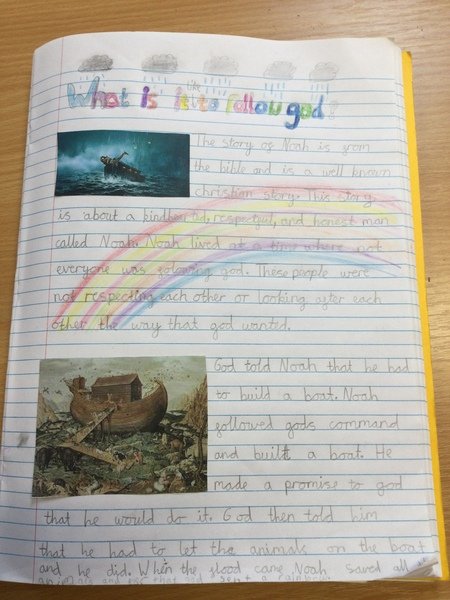 like
What is it to follow god?
The story of Noah is from
the bible and is a well known
christian story. This story
is about a kindhearted, respectful, and honest man
called Noah. Noah lived at a time where not
everyone was following god. These people were
not respecting each other or looking after each
other the way that god wanted.
God told Noah that he had
to build a boat. Noah
followed gods command
and built a boat. He
made a promise to god
that he would do it. God then told him
that he had to let the animals on the boat
and he did. When the flood came Noah saved all
animals and that god sent a rainbow